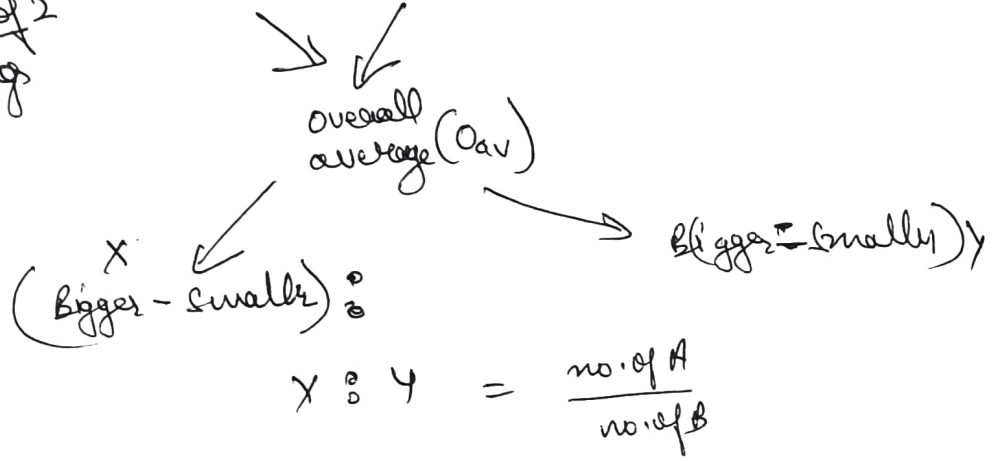 of 2
overall
average (Oav)
X
(Bigger - Smaller) :
B(igger - Smaller) Y
X : Y = no. of A
no. of B